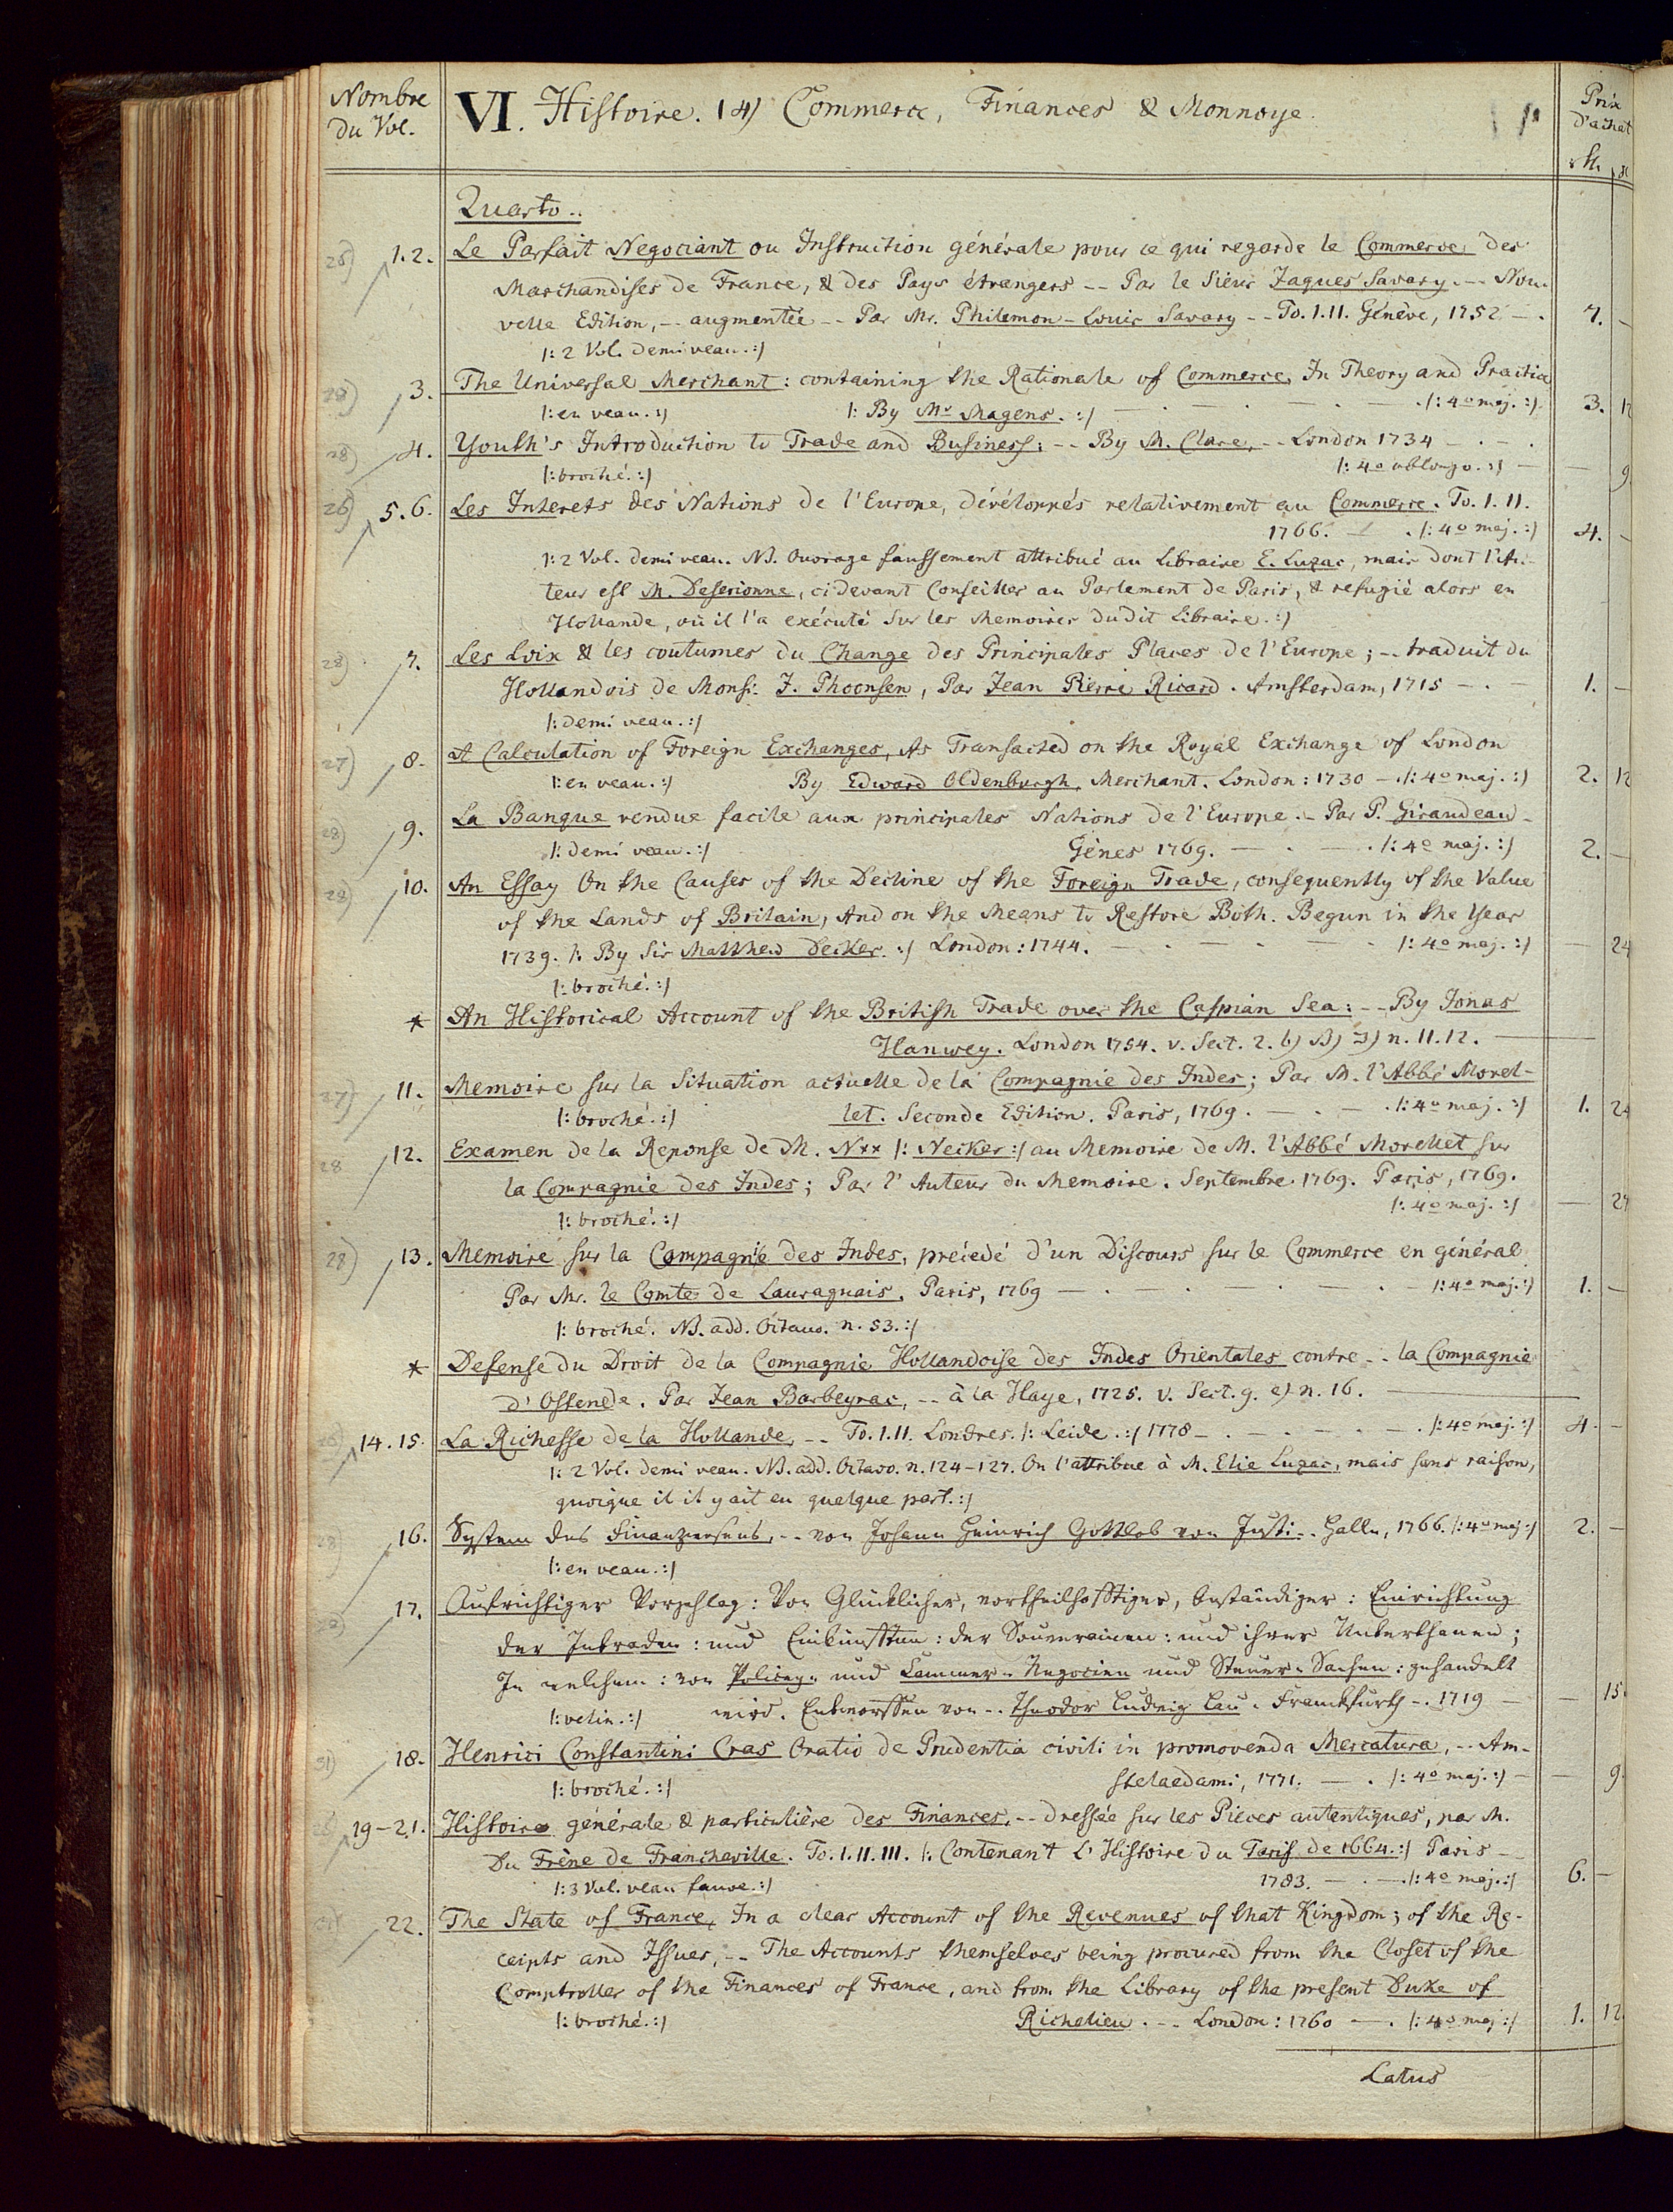 Nombre
du Vol.
VI. Histoire. 14) Commerce, Finances & Monnoye.
Prix
d'achat
Quarto..
1.2. Le Parfait Negociant ou Instruction générale pour ce qui regarde le Commerce des
Marchandises de France, & des Pays étrangers -- Par le Sieur Jaques Savary. -- Nou-
velle Edition, -- augmentée -- Par Mr. Philemon-Louis Savary -- To. I.II. Génève, 1752 — . 7. —
|: 2 Vol. demi veau. :|
28) 3. The Universal Merchant: containing the Rationale of Commerce, In Theory and Practice
|: en veau. :| |: By Mr. Magens. :| — . — . — . — . |: 4o maj. :| 3. 12
28) 4. Youth's Introduction to Trade and Business: -- By M. Clare, -- London 1734 — . — .
|: broché. :| |: 4o oblongo. :| — — 9
26) 5.6. Les Interets des Nations de l'Europe, dévélopés relativement au Commerce. To. I.II.
1766. — . |: 4o maj. :| 4. —
|: 2 Vol. demi veau. NB. Ouvrage faussement attribué au Libraire E. Luzac, mais dont l'Au-
teur est M. Deserionne, ci devant Conseiller au Parlement de Paris, & refugié alors en
Hollande, où il l'a exécuté sur les Memoires dudit Libraire. :|
28) 7. Les Loix & les coutumes du Change des Principales Places de l'Europe; -- traduit du
Hollandois de Monsr. J. Phoonsen, Par Jean Pierre Ricard. Amsterdam, 1715 — . 1. —
|: demi veau. :|
27) 8. A Calculation of Foreign Exchanges, As Transacted on the Royal Exchange of London
|: en veau. :| By Edward Oldenburgh, Merchant. London: 1730 — . |: 4o maj. :| 2. 12
28) 9. La Banque rendue facile aux principales Nations de l'Europe. -- Par P. Giraudeau -
|: demi veau. :| Génes 1769. — . — . |: 4o maj. :| 2. —
28) 10. An Essay On the Causes of the Decline of the Foreign Trade, consequently of the Value
of the Lands of Britain, And on the Means to Restore Both. Begun in the Year
1739. |: By Sir Matthew Decker. :| London: 1744. — . — . — . |: 4o maj. :| — 24
|: broché. :|
* An Historical Account of the British Trade over the Caspian Sea: -- By Jonas
Hanwey. London 1754. v. Sect. 2. b) B) n. 11.12. —
27) 11. Memoire sur la Situation actuelle de la Compagnie des Indes; Par M. l'Abbé Morel-
|: broché. :| let. Seconde Edition. Paris, 1769. — . — . |: 4o maj. :| 1. 24
28 12. Examen de la Reponse de M. N** |: Necker :| au Memoire de M. l'Abbé Morellet sur
la Compagnie des Indes; Par l'Auteur du Memoire. Septembre 1769. Paris, 1769.
|: broché. :| |: 4o maj. :| —
28) 13. Memoire sur la Compagnie des Indes, précedé d'un Discours sur le Commerce en général
Par Mr. le Comte de Lauraguais. Paris, 1769 — . — . — . — . |: 4o maj. :| 1. —
|: broché. NB. add. Octavo. n. 53. :|
* Defense du Droit de la Compagnie Hollandoise des Indes Orientales contre -- la Compagnie
d'Ostende. Par Jean Barbeyrac, -- à la Haye, 1725. v. Sect. 9. e) n. 16. —
14.15. La Richesse de la Hollande, -- To. I.II. Londres. |: Leide. :| 1778 — . — . — . |: 4o maj. :| 4. —
|: 2 Vol. demi veau. NB. add. Octavo. n. 124-127. On l'attribue à M. Elie Luzac, mais sans raison,
quoique il il y ait eu quelque part. :|
28) 16. System des Finanzwesens, -- von Johann Heinrich Gottlob von Justi -- Halle, 1766. |: 4o maj :| 2. —
|: en veau. :|
17. Aufrichtiger Vorschlag: Von Glücklicher, vortheilhafftiger, beständiger: Einrichtung
der Intraden: und Einkünfften: der Souverainen: und ihrer Unterthanen;
In welchem: von Policey- und Cammer- Negocien und Steuer- Sachen: gehandelt
|: velin. :| wird. Entworffen von -- Theodor Ludwig Lau. Franckfurth -- 1719 — — 15.
31) 18. Henrici Constantini Cras Oratio de Prudentia civili in promovenda Mercatura, -- Am-
|: broché. :| stelaedami, 1771. — . |: 4o maj. :| — — 9.
19-21. Histoire générale & particulière des Finances, -- dressée sur les Pieces autentiques, par M.
Du Frêne de Francheville. To. I.II.III. |: Contenant L'Histoire du Tarif de 1664. :| Paris -
|: 3 Vol. veau fauve. :| 1783. — . — . |: 4o maj. :| 6. —
22. The State of France, In a clear Account of the Revenues of that Kingdom; of the Re-
ceipts and Issues, -- The Accounts themselves being procured from the Closet of the
Comptroller of the Finances of France, and from the Library of the present Duke of
|: broché. :| Richelieu. -- London: 1760 — . |: 4o maj :| 1. 12.
Latus